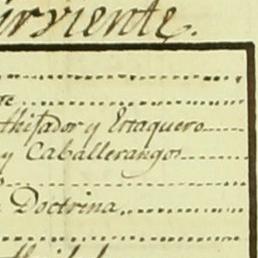 irviente.
te
thisador y Estaquero
y Caballerangos
Doctrina